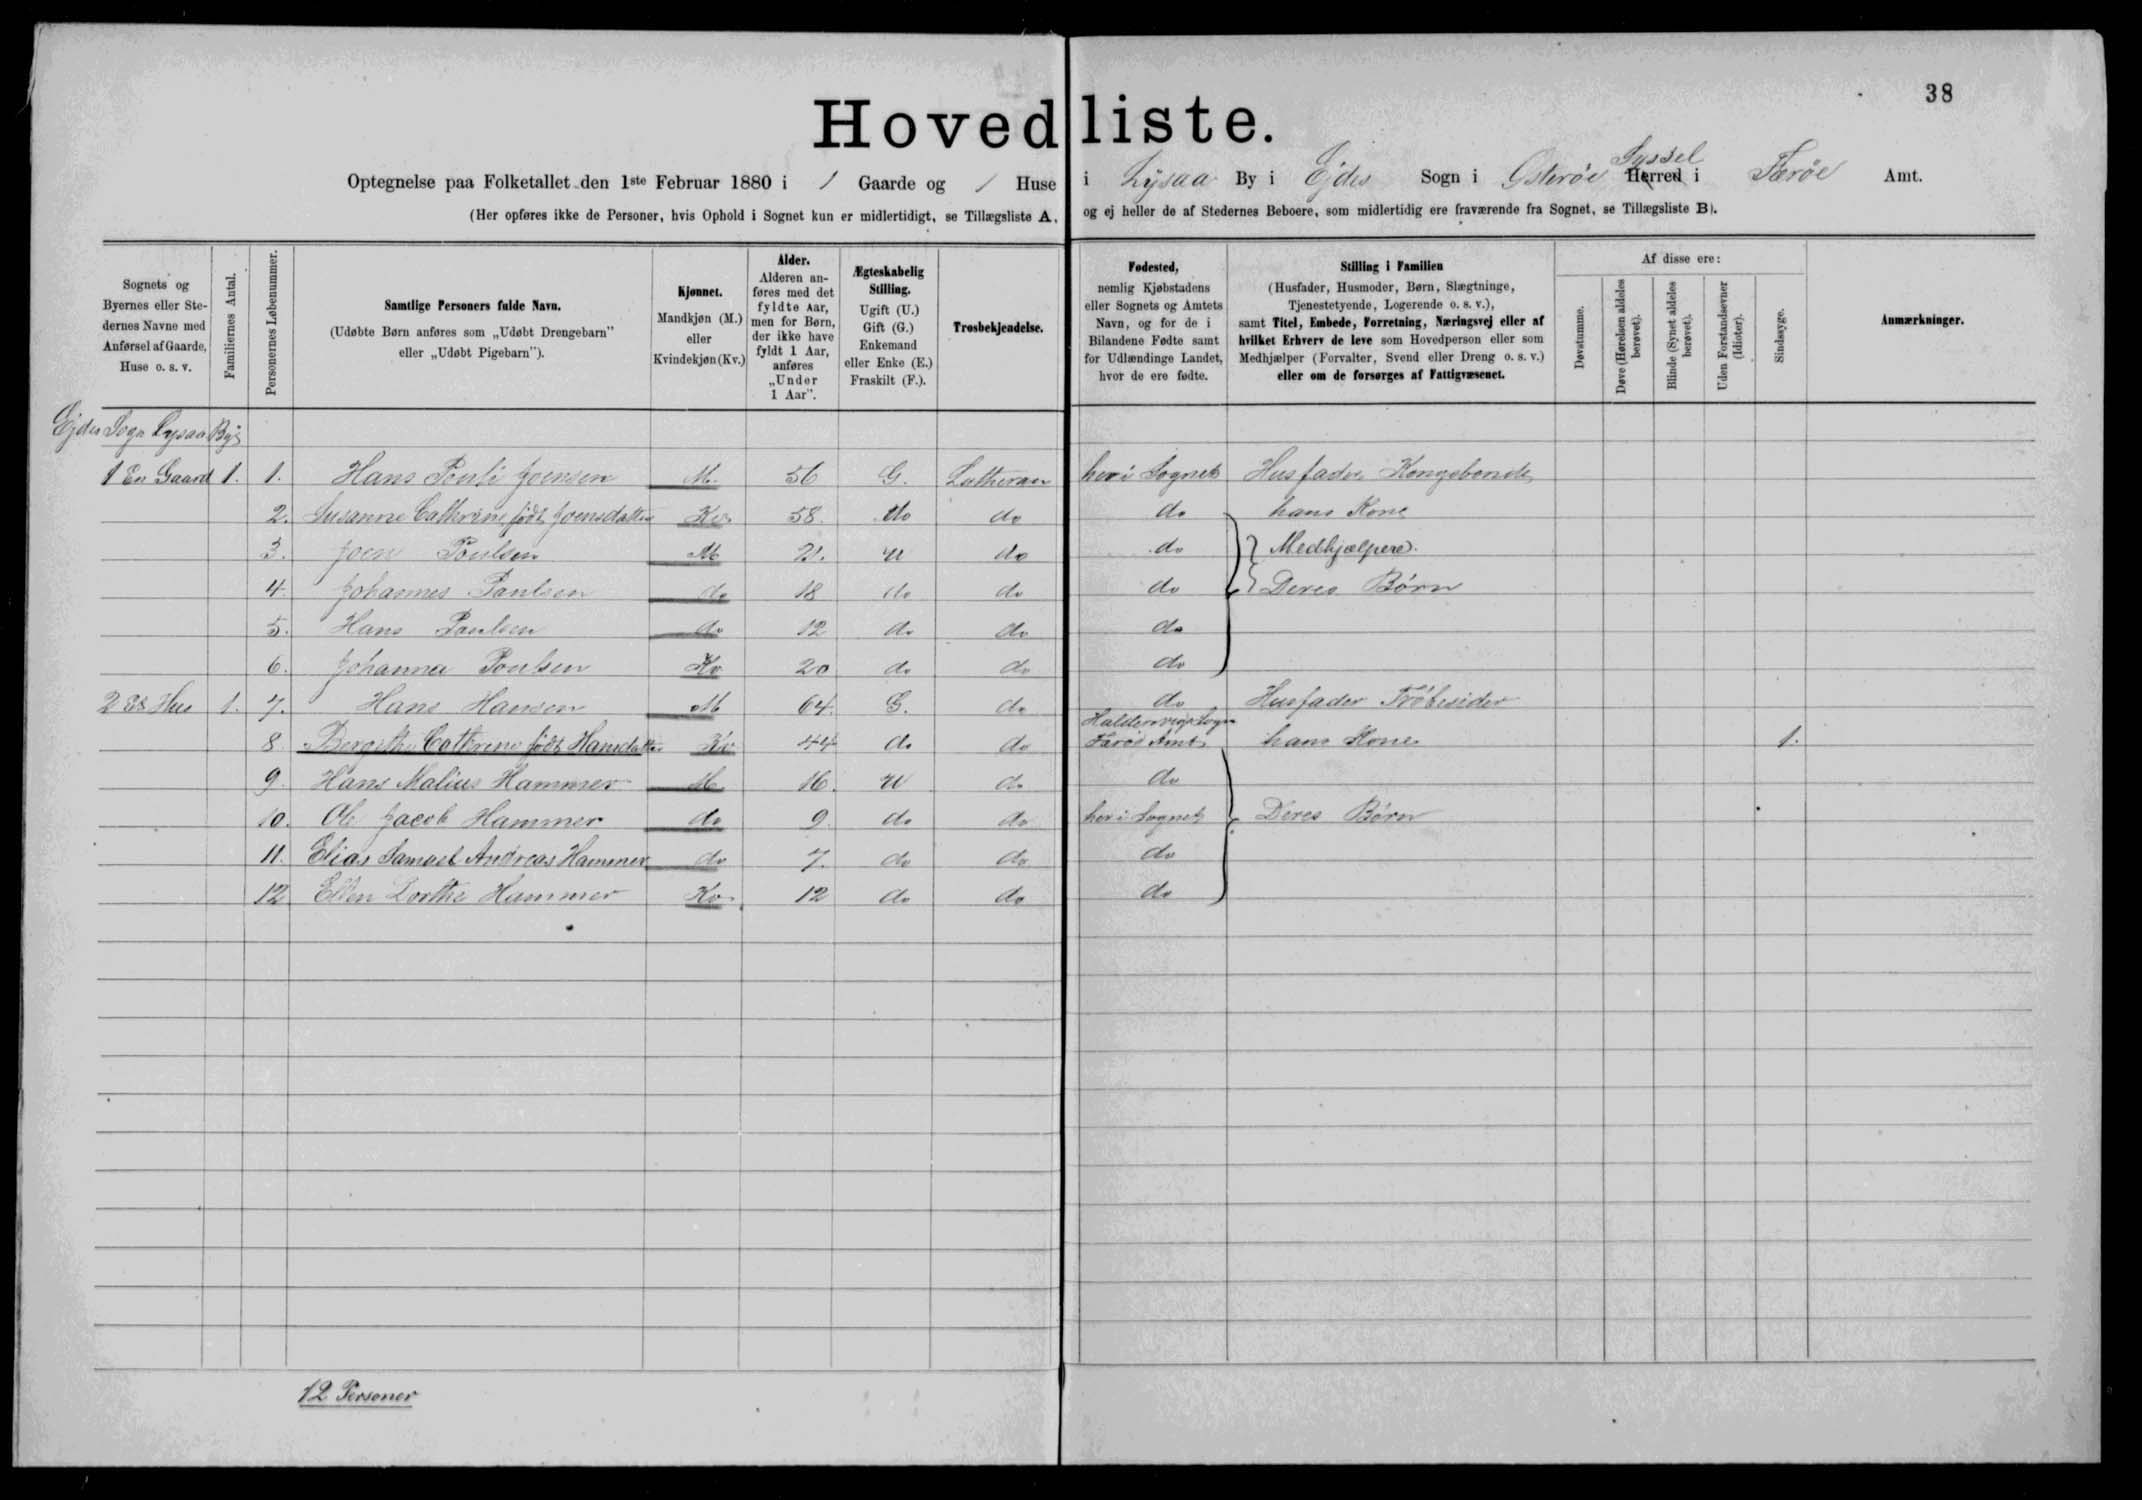 38
Hovedliste.
Optegnelse paa Folketallet den 1ste Februar 1880 i 1 Gaarde og 1 Huse i Lysaa By i Ejdes Sogn i Østerøe Herred Syssel i Færøe Amt.
(Her opføres ikke de Personer, hvis Ophold i Sognet kun er midlertidigt, se Tillægsliste A, og ej heller de af Stedernes Beboere, som midlertidig ere fraværende fra Sognet, se Tillægsliste B).
Sognets og Byernes eller Stedernes Navne med Anførsel af Gaarde, Huse o. s. v.
Familiernes Antal.
Personernes Løbenummer.
Samtlige Personers fulde Navn.
(Udøbte Børn anføres som „Udøbt Drengebarn" eller „Udøbt Pigebarn").
Kjønnet.
Mandkjøn (M.) eller Kvindekjøn (Kv.)
Alder.
Alderen anføres med det fyldte Aar, men for Børn, der ikke have fyldt 1 Aar, anføres „Under 1 Aar".
Ægteskabelig Stilling.
Ugift (U.) Gift (G.) Enkemand eller Enke (E.) Fraskilt (F.).
Trosbekjendelse.
Fødested,
nemlig Kjøbstadens eller Sognets og Amtets Navn, og for de i Bilandene Fødte samt for Udlændinge Landet, hvor de ere fødte.
Stilling i Familien
(Husfader, Husmoder, Børn, Slægtninge, Tjenestetyende, Logerende o. s. v.), samt Titel, Embede, Forretning, Næringsvej eller af hvilket Erhverv de leve som Hovedperson eller som Medhjælper (Forvalter, Svend eller Dreng o. s. v.) eller om de forsørges af Fattigvæsenet.
Af disse ere:
Døvstumme.
Døve (Hørelsen aldeles berøvet).
Blinde (Synet aldeles berøvet).
Uden Forstandsevner (Idioter).
Sindssyge.
Anmærkninger.
Ejdes Sogn Lysaa By
1 En Gaard 1. 1. Hans Pouli Joensen M. 56 G. Lutheran her i Sognet Husfader Kongsbonde
2. Susanne Cathrine født Joensdatter Kv 58 do do do hans Kone
3. Joen Poulsen M 21. U do do Medhjælpere.
4. Johannes Poulsen do 18 do do do Deres Børn
5. Hans Poulsen do 12 do do do
6. Johanna Poulsen Kv 20 do do do
2 Et Hus 1. 7. Hans Hansen M 64. G. do do Husfader
8. Cathrine født Hansdatter Kv 44 do do Haldersvigs Sogn Færøe Amt hans Kone 1.
9. Hans Malius Hammer M 16. U do do
10. Ole Jacob Hammer do 9. do do her i Sognet Deres Børn
11. Elias Samuel Andreas Hammer do 7. do do do
12 Ellen Dorthe Hammer Kv. 12 do do do
12 Personer